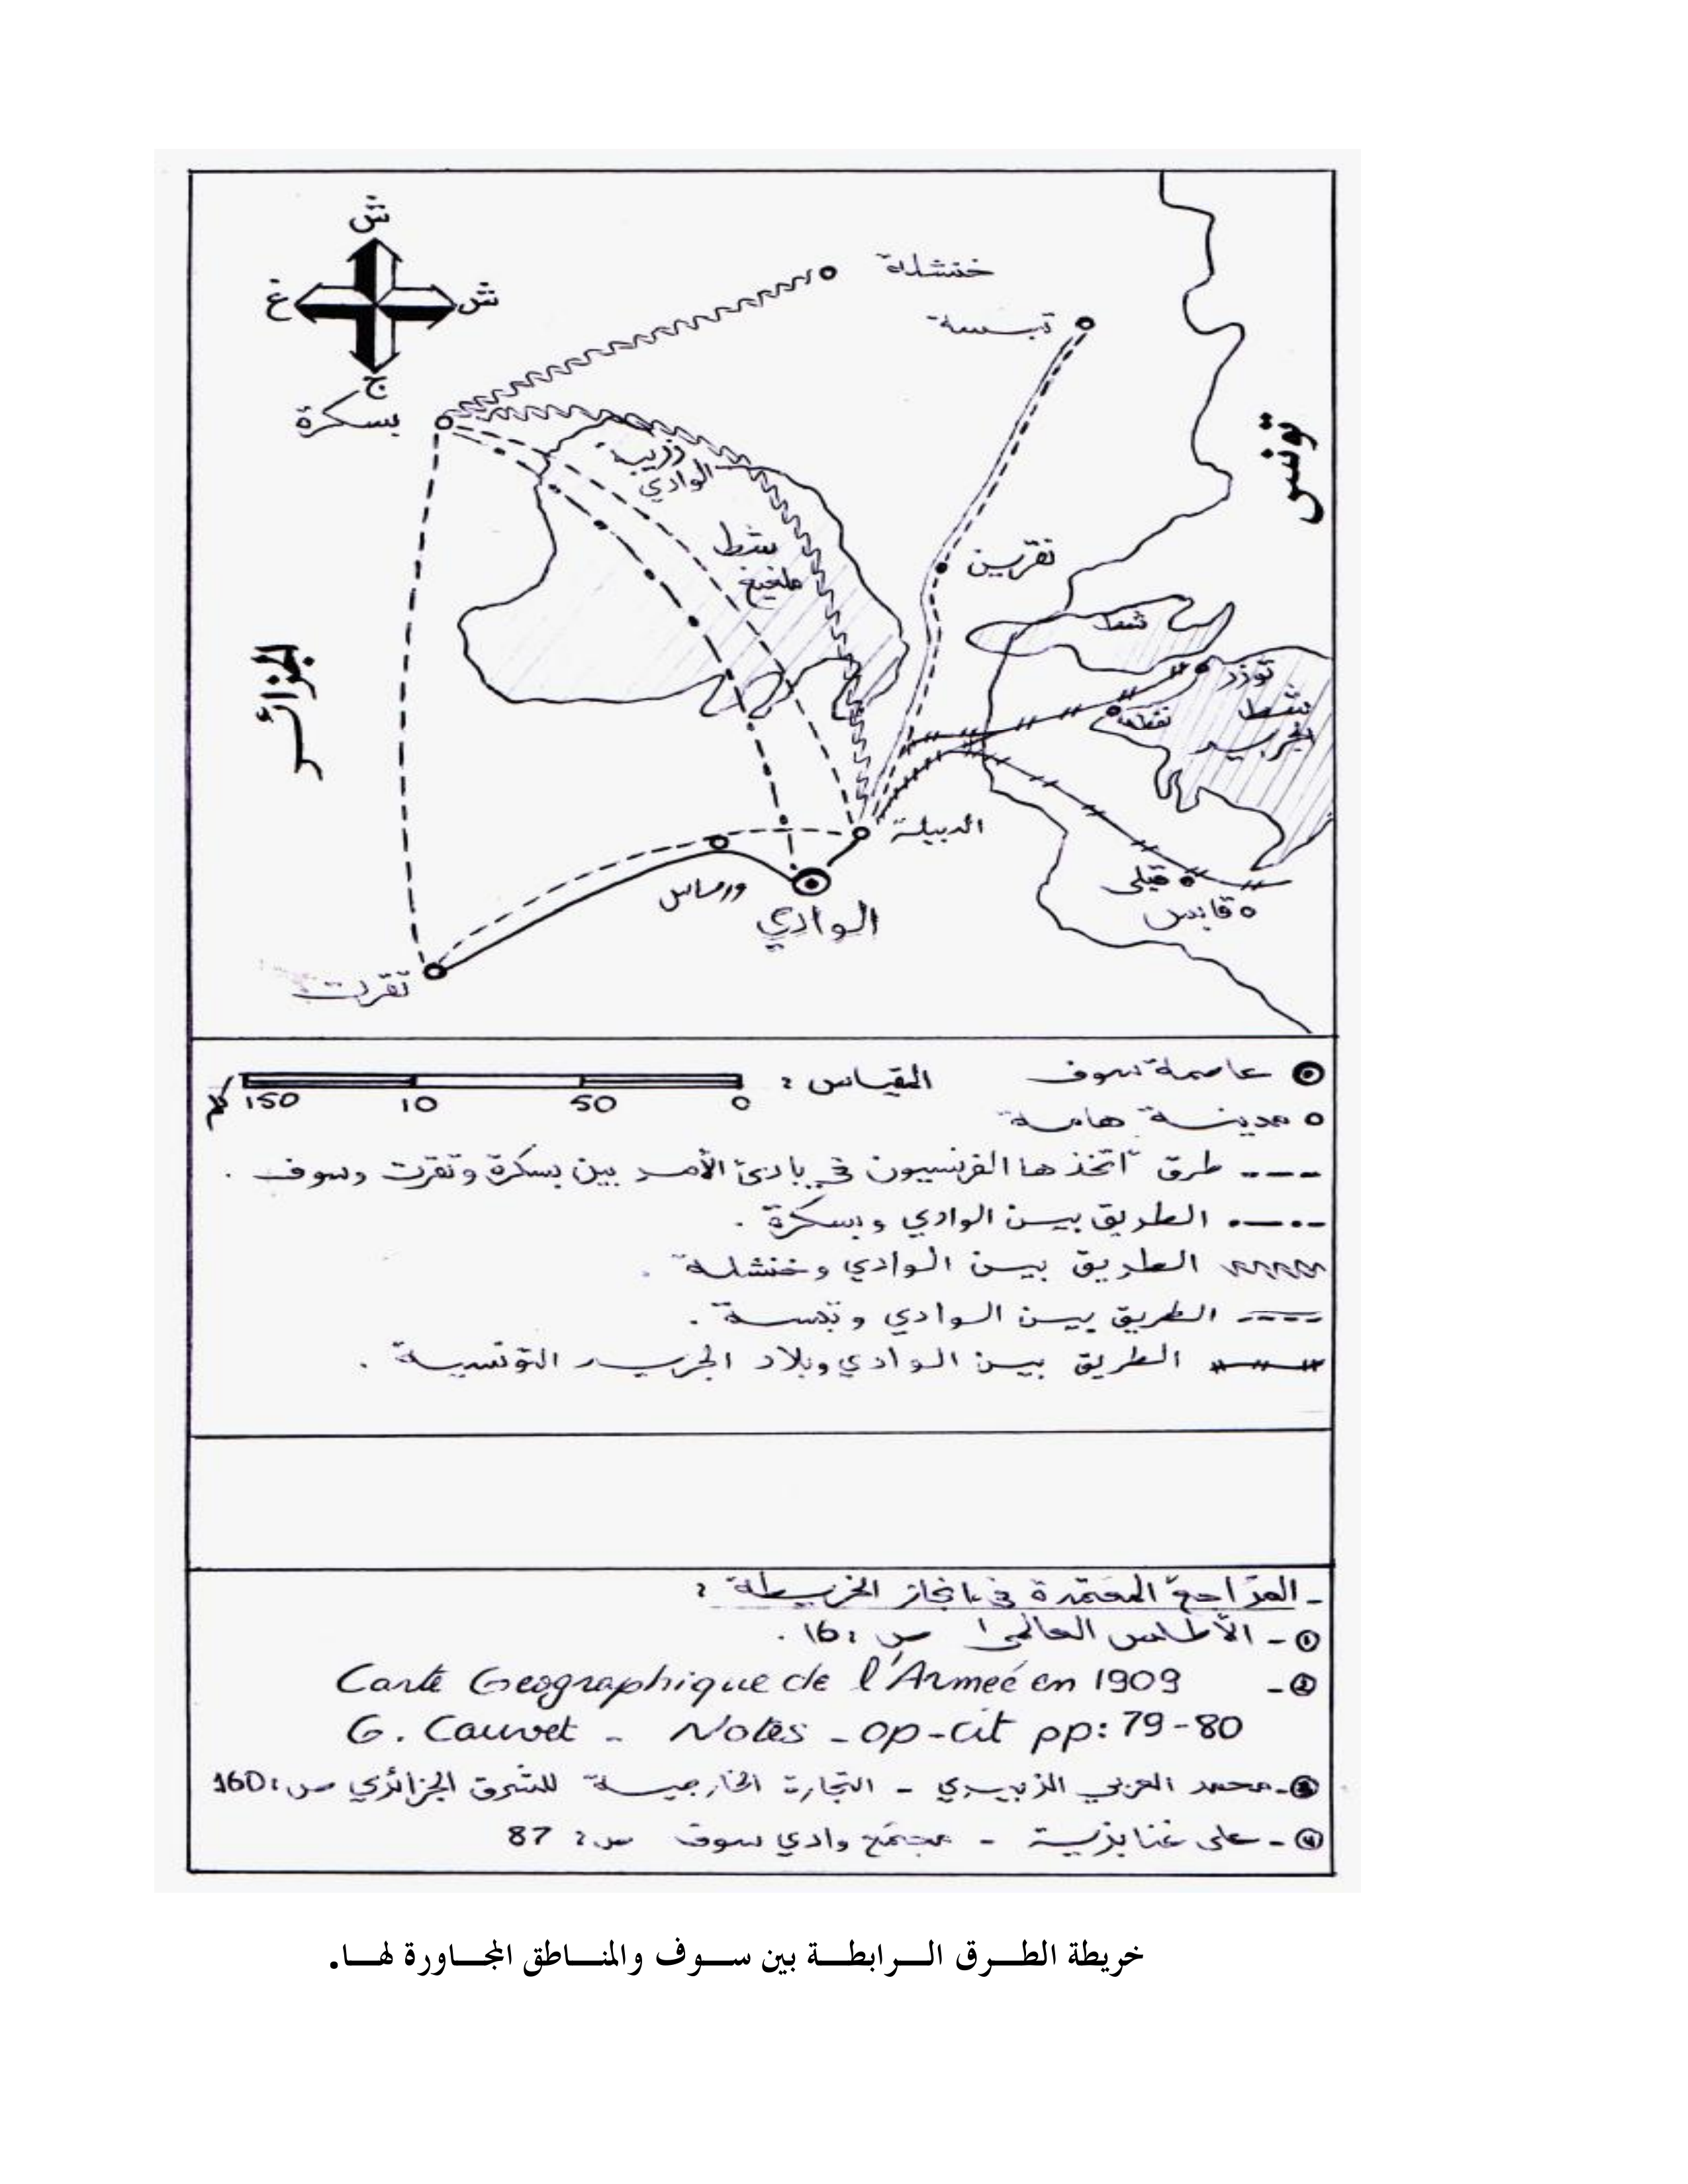 ش
غ
ش
ج
خنشلة
تبسة
بسكرة
تونس
زريبة
الوادي
شط
ملغيغ
نقرين
شط
توزر
نفطة
شط
الجريد
الجزائر
الدبيلة
قبلي
قابس
ورماس
الوادي
تقرت
عاصمة سوف
المقياس :
0 50 10 150 كم
مدينة هامة
--- طرق اتخذها الفرنسيون في بادئ الأمر بين بسكرة وتقرت وسوف .
الطريق بين الوادي وبسكرة .
الطريق بين الوادي وخنشلة .
الطريق بين الوادي وتبسة .
الطريق بين الوادي وبلاد الجريد التونسية .
- المراجع المعتمدة في انجاز الخريطة :
① - الأطلس العالمي ص : 16 .
② - Carte Geographique de l'Armeé en 1909
G. Cauvet - Notes - op-cit pp: 79-80
③ - محمد العربي الزبيري - التجارة الخارجية للشرق الجزائري ص : 160
④ - علي غنابزية - مجتمع وادي سوف ص : 87
خريطة الطـــرق الـــرابطـــة بين ســـوف والمنـــاطق المجـــاورة لهـــا.